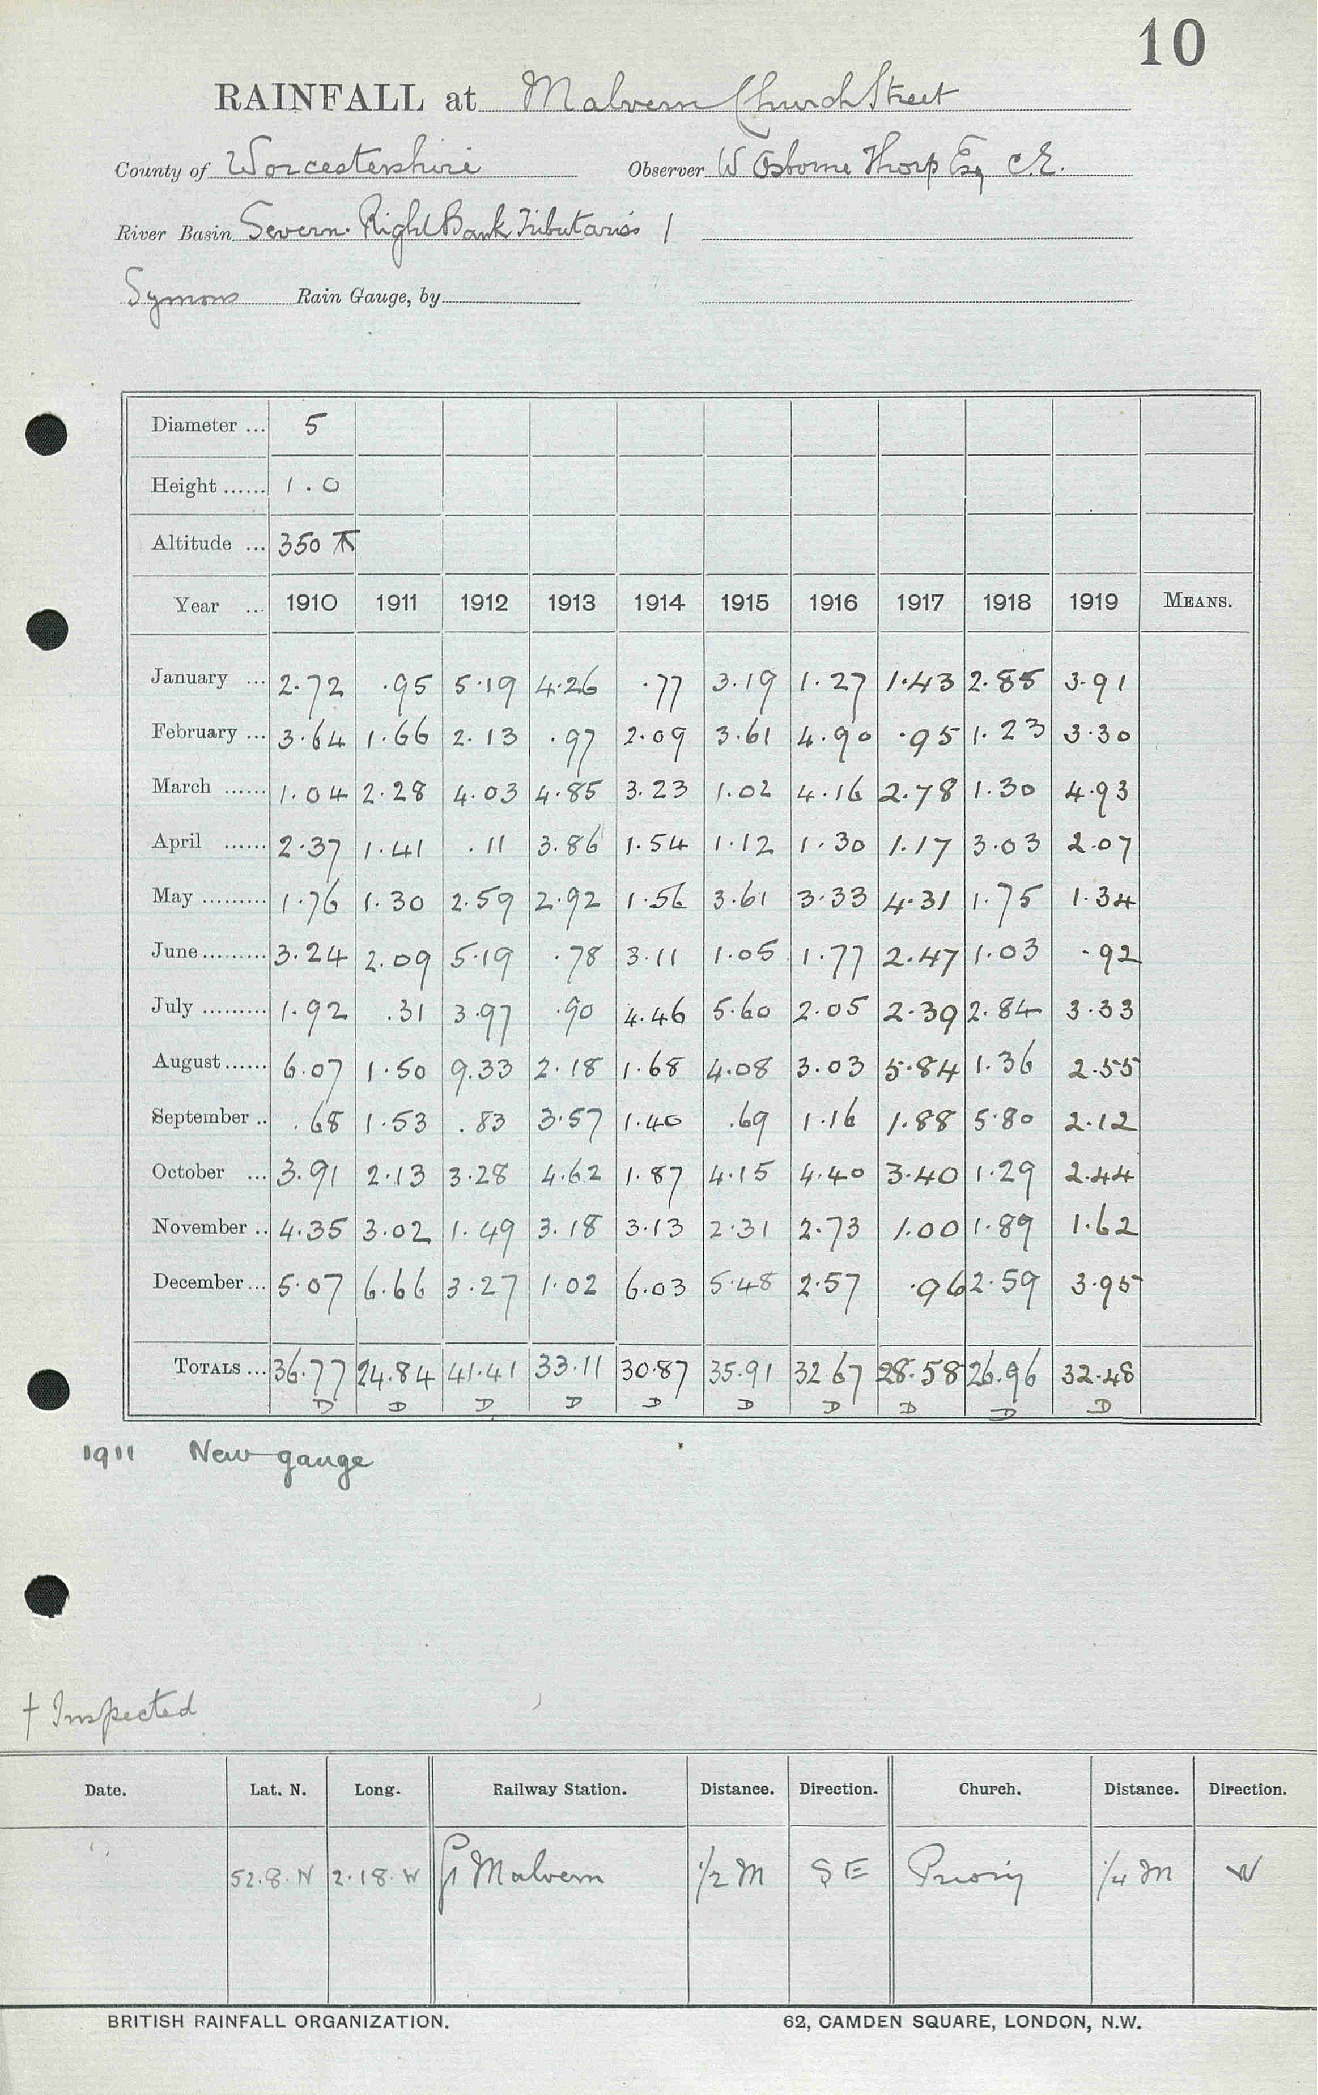 10
RAINFALL at Malvern Church Street
County of Worcestershire Observer W Osborne Thorp Esq C.E.
River Basin Severn. Right Bank Tributaries 1
Symons Rain Gauge, by
Diameter ... 5
Height ...... 1.0
Altitude ... 350
Year ... 1910 1911 1912 1913 1914 1915 1916 1917 1918 1919 MEANS.
January ... 2.72 .95 5.19 4.26 .77 3.19 1.27 1.43 2.85 3.91
February ... 3.64 1.66 2.13 .97 2.09 3.61 4.90 .95 1.23 3.30
March ...... 1.04 2.28 4.03 4.85 3.23 1.02 4.16 2.78 1.30 4.93
April ...... 2.37 1.41 .11 3.86 1.54 1.12 1.30 1.17 3.03 2.07
May ......... 1.76 1.30 2.59 2.92 1.56 3.61 3.33 4.31 1.75 1.34
June ......... 3.24 2.09 5.19 .78 3.11 1.05 1.77 2.47 1.03 .92
July ......... 1.92 .31 3.97 .90 4.46 5.60 2.05 2.39 2.84 3.33
August ...... 6.07 1.50 9.33 2.18 1.68 4.08 3.03 5.84 1.36 2.55
September .. .68 1.53 .83 3.57 1.40 .69 1.16 1.88 5.80 2.12
October ... 3.91 2.13 3.28 4.62 1.87 4.15 4.40 3.40 1.29 2.44
November .. 4.35 3.02 1.49 3.18 3.13 2.31 2.73 1.00 1.89 1.62
December ... 5.07 6.66 3.27 1.02 6.03 5.48 2.57 .96 2.59 3.95
TOTALS ... 36.77 24.84 41.41 33.11 30.87 35.91 32.67 28.58 26.96 32.48
D D D D D D D D D D
1911 New gauge
† Inspected
Date. Lat. N. Long. Railway Station. Distance. Direction. Church. Distance. Direction.
52.8.N 2.18.W Gt Malvern 1/2 M SE Priory 1/4 M W
BRITISH RAINFALL ORGANIZATION. 62, CAMDEN SQUARE, LONDON, N.W.